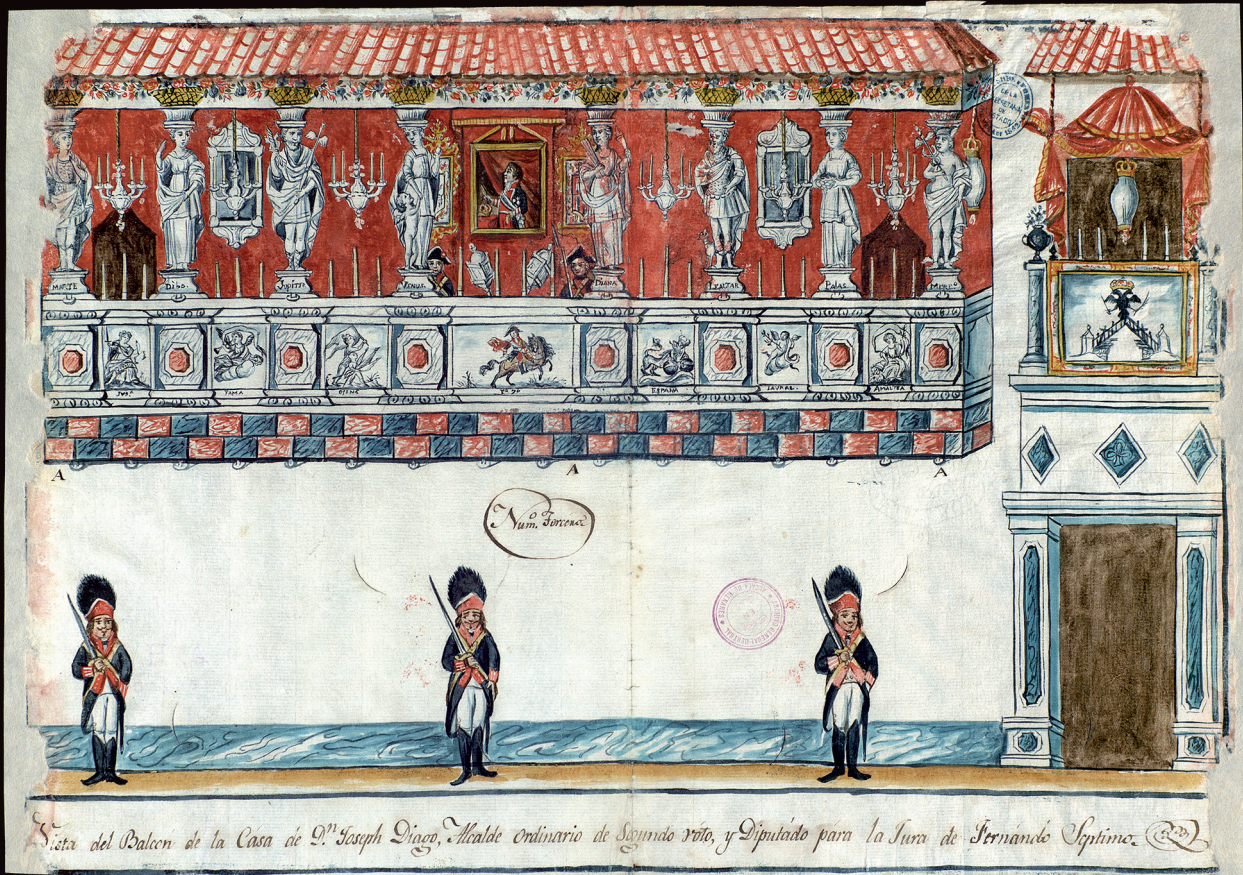 MARTE
Dios
Jupiter
Venus
DIANA
LEALTAD
Palas
MERC.º
FAMA
ESPAÑA
AMALTEA
A
A
A
Num.º Tercero
Vista del Balcon de la Casa de D.n Joseph Diago, Alcalde Ordinario de Segundo Vóto, y Diputádo pára la Jura de Fernándo Septimo.